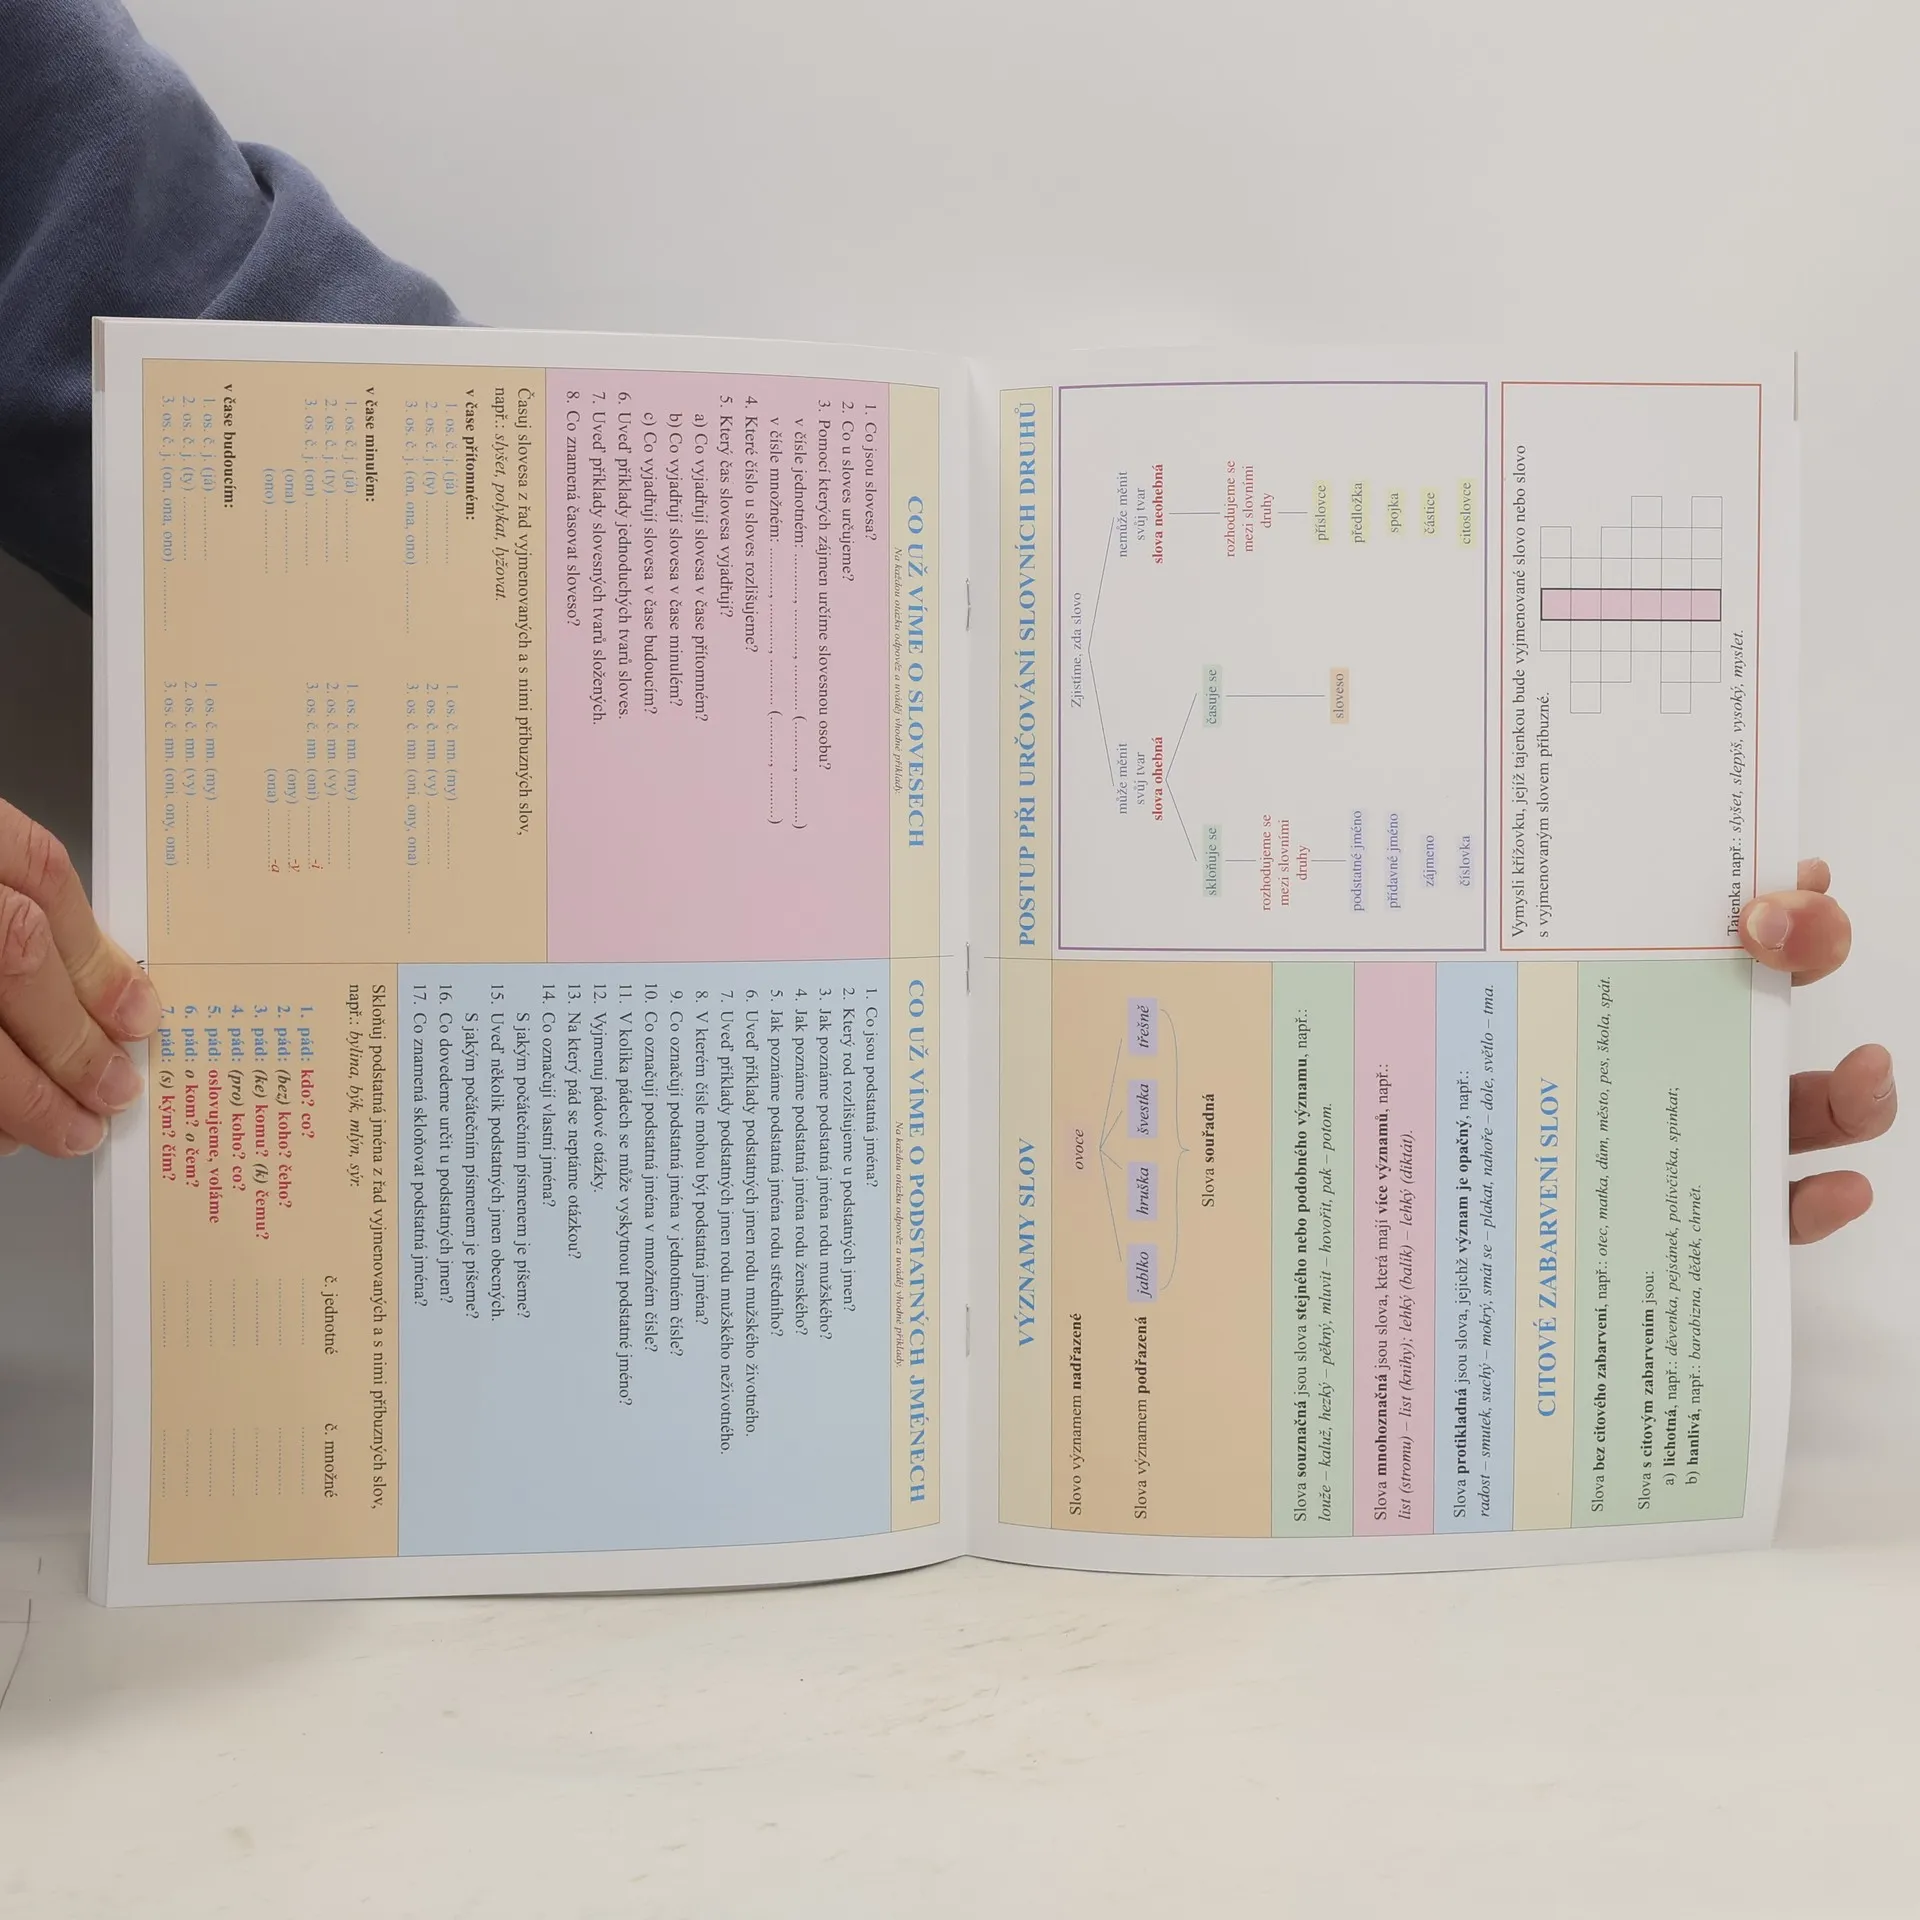 CO UŽ VÍME O SLOVESECH
Na každou otázku odpověz a uváděj vhodné příklady.
1. Co jsou slovesa?
2. Co u sloves určujeme?
3. Pomocí kterých zájmen určíme slovesnou osobu?
v čísle jednotném: ............, ............, ............ (............, ............)
v čísle množném: ............, ............, ............ (............, ............)
4. Které číslo u sloves rozlišujeme?
5. Který čas slovesa vyjadřují?
a) Co vyjadřují slovesa v čase přítomném?
b) Co vyjadřují slovesa v čase minulém?
c) Co vyjadřují slovesa v čase budoucím?
6. Uveď příklady jednoduchých tvarů sloves.
7. Uveď příklady slovesných tvarů složených.
8. Co znamená časovat sloveso?
Časuj slovesa z řad vyjmenovaných a s nimi příbuzných slov,
např.: slyšet, polykat, lyžovat.
v čase přítomném:
1. os. č. j. (já) ............ 1. os. č. mn. (my) ............
2. os. č. j. (ty) ............ 2. os. č. mn. (vy) ............
3. os. č. j. (on, ona, ono) ............ 3. os. č. mn. (oni, ony, ona) ............
v čase minulém:
1. os. č. j. (já) ............ 1. os. č. mn. (my) ............
2. os. č. j. (ty) ............ 2. os. č. mn. (vy) ............
3. os. č. j. (on) ............ 3. os. č. mn. (oni) ............-i
(ona) ............ (ony) ............-y
(ono) ............ (ona) ............-a
v čase budoucím:
1. os. č. j. (já) ............ 1. os. č. mn. (my) ............
2. os. č. j. (ty) ............ 2. os. č. mn. (vy) ............
3. os. č. j. (on, ona, ono) ............ 3. os. č. mn. (oni, ony, ona) ............
CO UŽ VÍME O PODSTATNÝCH JMÉNECH
Na každou otázku odpověz a uváděj vhodné příklady.
1. Co jsou podstatná jména?
2. Který rod rozlišujeme u podstatných jmen?
3. Jak poznáme podstatná jména rodu mužského?
4. Jak poznáme podstatná jména rodu ženského?
5. Jak poznáme podstatná jména rodu středního?
6. Uveď příklady podstatných jmen rodu mužského životného.
7. Uveď příklady podstatných jmen rodu mužského neživotného.
8. V kterém čísle mohou být podstatná jména?
9. Co označují podstatná jména v jednotném čísle?
10. Co označují podstatná jména v množném čísle?
11. V kolika pádech se může vyskytnout podstatné jméno?
12. Vyjmenuj pádové otázky.
13. Na který pád se neptáme otázkou?
14. Co označují vlastní jména?
S jakým počátečním písmenem je píšeme?
15. Uveď několik podstatných jmen obecných.
S jakým počátečním písmenem je píšeme?
16. Co dovedeme určit u podstatných jmen?
17. Co znamená skloňovat podstatná jména?
Skloňuj podstatná jména z řad vyjmenovaných a s nimi příbuzných slov,
např.: bylina, býk, mlýn, sýr.
č. jednotné č. množné
1. pád: kdo? co? ............ ............
2. pád: (bez) koho? čeho? ............ ............
3. pád: (ke) komu? (k) čemu? ............ ............
4. pád: (pro) koho? co? ............ ............
5. pád: oslovujeme, voláme ............ ............
6. pád: o kom? o čem? ............ ............
7. pád: (s) kým? čím? ............ ............
VÝZNAMY SLOV
Slovo významem nadřazené ovoce
Slova významem podřazená jablko hruška švestka třešně
Slova souřadná
Slova souznačná jsou slova stejného nebo podobného významu, např.:
louže – kaluž, hezký – pěkný, mluvit – hovořit, pak – potom.
Slova mnohoznačná jsou slova, která mají více významů, např.:
list (stromu) – list (knihy); lehký (balík) – lehký (diktát).
Slova protikladná jsou slova, jejichž význam je opačný, např.:
radost – smutek, suchý – mokrý, smát se – plakat, nahoře – dole, světlo – tma.
CITOVÉ ZABARVENÍ SLOV
Slova bez citového zabarvení, např.: otec, matka, dům, město, pes, škola, spát.
Slova s citovým zabarvením jsou:
a) lichotná, např.: děvenka, pejsánek, polívčička, spinkat;
b) hanlivá, např.: barabizna, dědek, chrnět.
POSTUP PŘI URČOVÁNÍ SLOVNÍCH DRUHŮ
Zjistíme, zda slovo
může měnit nemůže měnit
svůj tvar svůj tvar
slova ohebná slova neohebná
skloňuje se časuje se
rozhodujeme se rozhodujeme se
mezi slovními mezi slovními
druhy druhy
podstatné jméno sloveso příslovce
přídavné jméno předložka
zájmeno spojka
číslovka částice
citoslovce
Vymysli křížovku, jejíž tajenkou bude vyjmenované slovo nebo slovo
s vyjmenovaným slovem příbuzné.
Tajenka např.: slyšet, slepýš, vysoký, myslet.